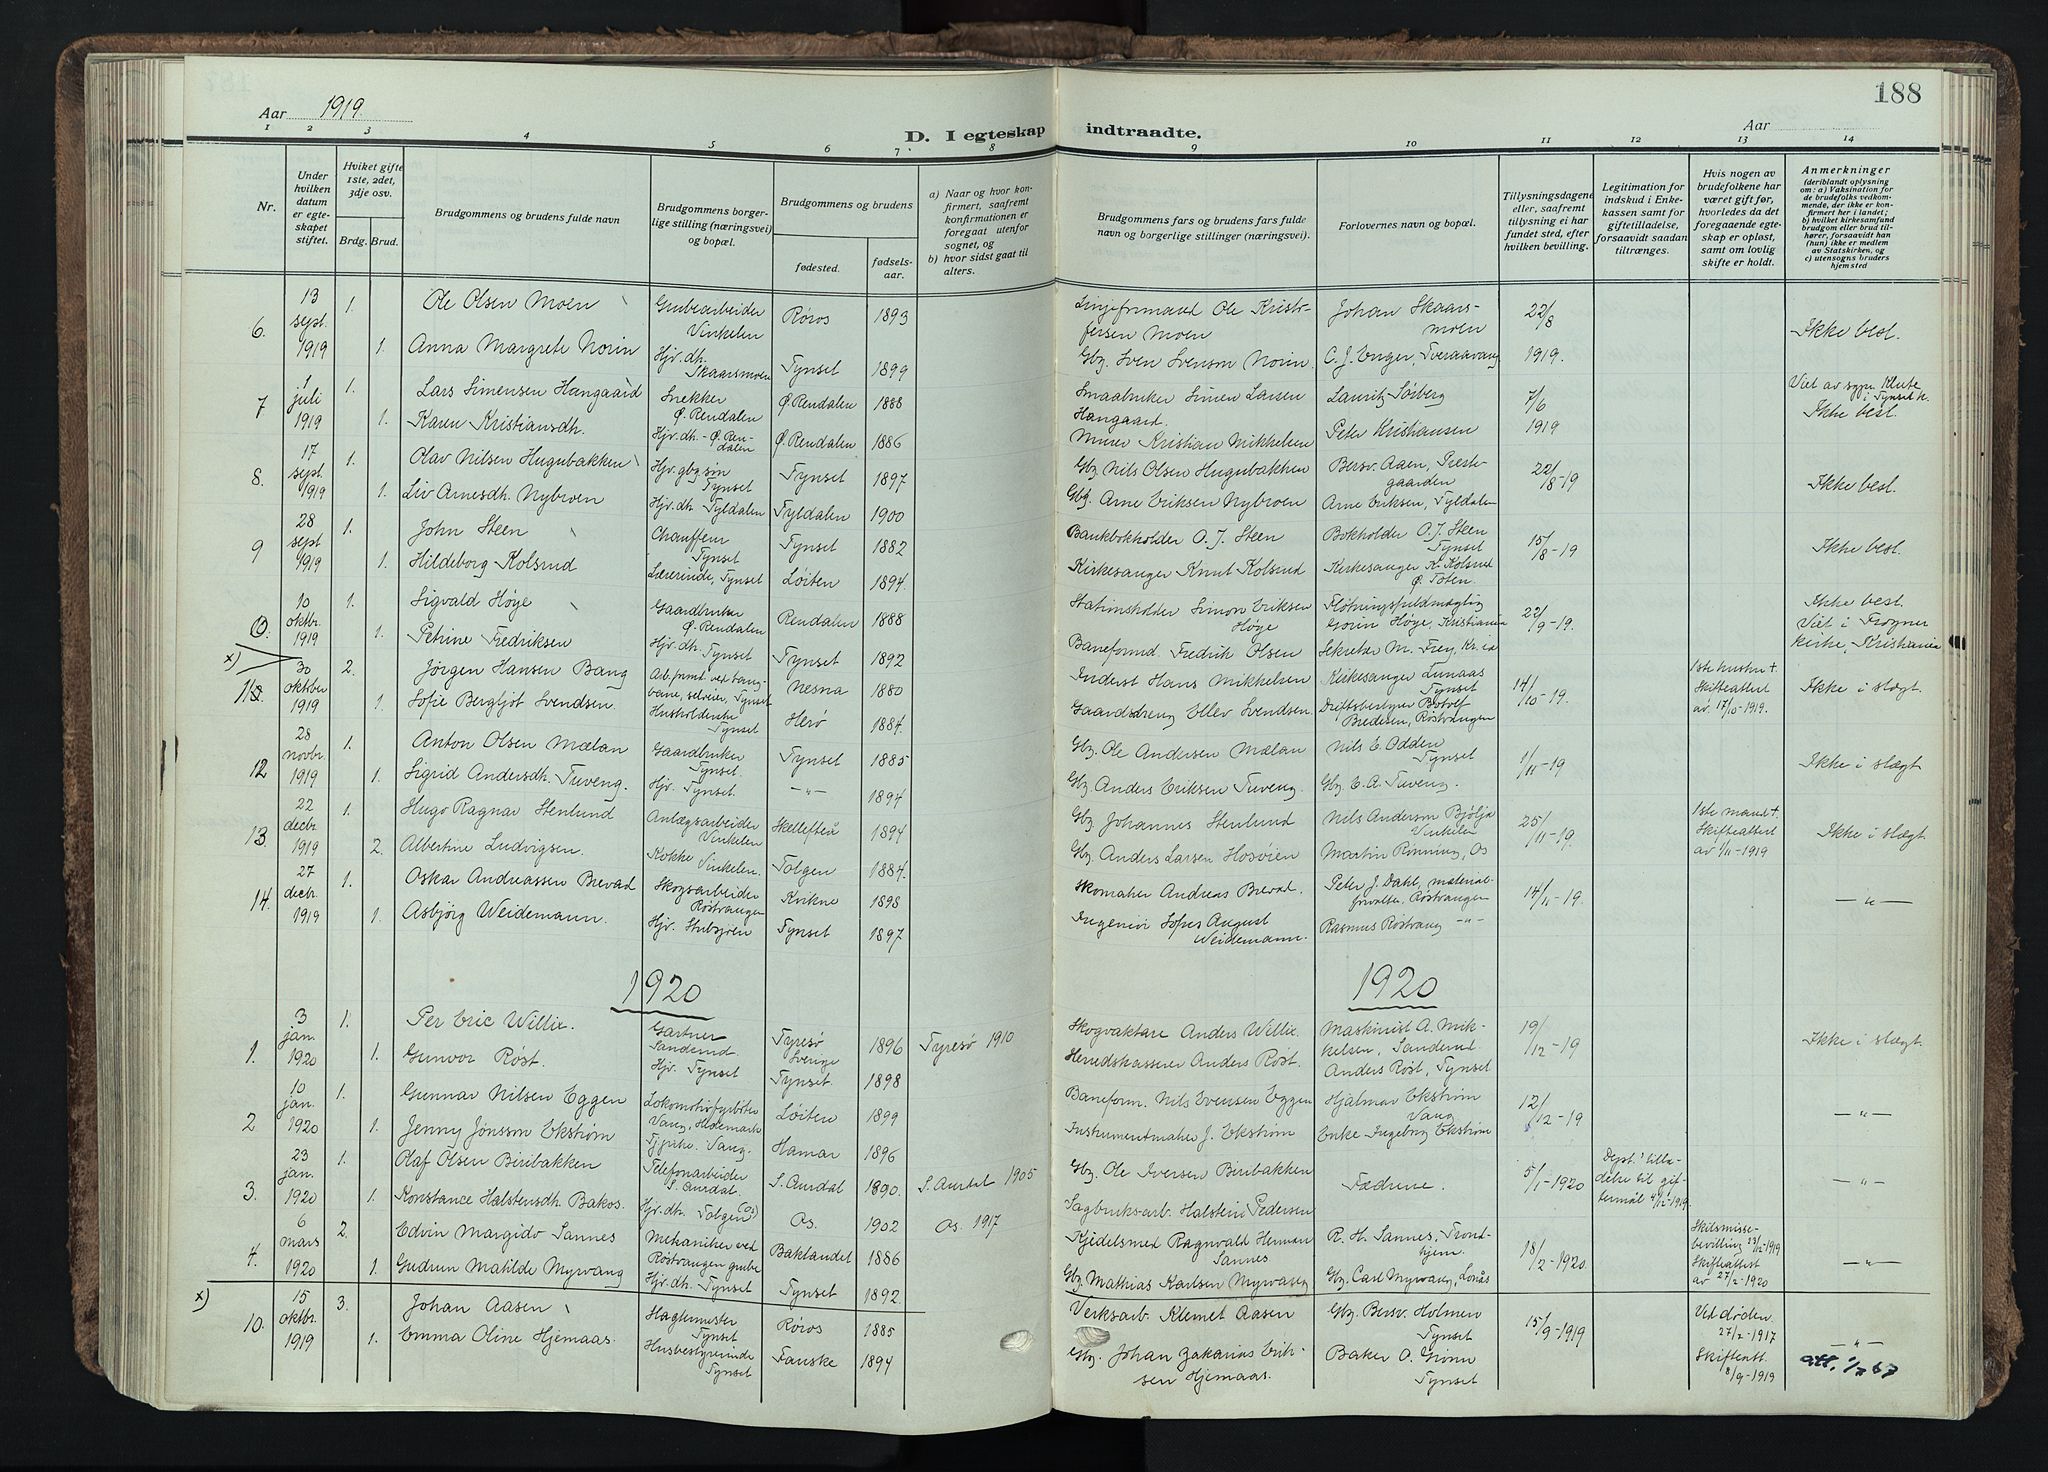 188
Aar 1919.
D. I egteskap indtraadte.
Aar
1 2 3 4 5 6 7 8 9 10 11 12 13 14
Nr.
Under hvilken datum er egteskapet stiftet.
Hviket gifte 1ste, 2det, 3dje osv.
Brdg. Brud.
Brudgommens og brudens fulde navn
Brudgommens borgerlige stilling (næringsvei) og bopæl.
Brudgommens og brudens
fødested.
fødselsaar.
a) Naar og hvor konfirmert, saafremt konfirmationen er foregaat utenfor sognet, og
b) hvor sidst gaat til alters.
Brudgommens fars og brudens fars fulde navn og borgerlige stillinger (næringsvei).
Forlovernes navn og bopæl.
Tillysningsdagene eller, saafremt tillysning ei har fundet sted, efter hvilken bevilling.
Legitimation for indskud i Enkekassen samt for giftetilladelse, forsaavidt saadan tiltrænges.
Hvis nogen av brudefolkene har været gift før, hvorledes da det foregaaende egteskap er opløst, samt om lovlig skifte er holdt.
Anmerkninger
(deriblandt oplysning om: a) Vaksination for de brudefolks vedkommende, der ikke er konfirmert her i landet; b) hvilket kirkesamfund brudgom eller brud tilhører, forsaavidt han (hun) ikke er medlem av Statskirken, og c) utensogns bruders hjemsted
6. 13 sept. 1919 1. Ole Olsen Moen Grubearbeider Vinkelen Røros 1893 Linjeformand Ole Kristoffersen Moen Johan Skaarsmoen 22/8 1919. Ikke besl.
1. Anna Margrete Norin Hjv. dh. Skaarsmoen Tynset 1899 Gbr. Sven Svenson Norin. C. J. Enger, Tveraavang
7 1 juli 1919 1. Lars Simensen Haugaard Snekker Ø. Rendalen Ø. Rendalen 1888 Smaabruker Simen Larsen Haugaard. Lauritz Søberg 7/6 1919 Viet av sgpr. Klute i Tynset k. Ikke besl.
1. Karen Kristiansdh. Hjv. dh. - Ø. Rendalen Ø. Rendalen 1886 Murer Kristian Mikkelsen Peter Kristiansen
8. 17 sept. 1919 1. Olav Nilsen Hugubakken Hjv. gbr. søn Tynset Tynset 1897 Gbr. Nils Olsen Hugubakken Bersv. Aaen, Prestegaarden 22/8-19 Ikke besl.
1. Liv Arnesdh. Nybroen Hjv. dh. Tyldalen Tyldalen 1900 Gbr. Arne Eriksen Nybroen Arne Eriksen, Tyldalen
9 28 sept 1919 1. John Steen Chauffeur Tynset Tynset 1882 Bankbokholder O. J. Steen Bokholder O. J. Steen Tynset 15/8-19 Ikke besl.
1. Hildeborg Kolsrud Lærerinde, Tynset Løiten 1894. Kirkesanger Knut Kolsrud Kirkesanger K. Kolsrud Ø. Toten.
10. 10 oktbr. 1919 1. Sigvald Høye Gaardbruker Ø. Rendalen Rendalen 1888 Stationsholder Simon Eriksen Høye Fløtningsfuldmægtig Gorin Høye, Kristiania 22/9-19. Ikke besl. Viet i Frogner kirke, Kristiania
1. Petrine Fredriksen Hjv. dh. Tynset Tynset 1892 Baneformd. Fredrik Olsen Sekretær M. Frey, Kr.ia
x)
11 30 oktober 1919 2. Jørgen Hansen Bang Arb. frmd. ved taugbane, selveier, Tynset Nesna 1880 Inderst Hans Mikkelsen Kirkesanger Lunaas Tynset 14/10-19. 1ste hustru + Skifteattest av 17/10-1919. Ikke i slægt.
1. Sofie Bergljot Svendsen. Husholderske Tynset Herø 1884. Gaardsdreng Ellev Svendsen. Driftsbestyrer Botolf Bredesen, Røstvangen
12 28 novbr. 1919 1. Anton Olsen Mælan Gaardbruker Tynset. Tynset 1885 Gbr. Ole Andersen Mælan Nils E. Odden Tynset 1/11-19 Ikke i slægt.
1. Sigrid Andersdh. Tuveng. Hjv. Tynset. -"- 1894 Gbr. Anders Eriksen Tuveng. Gbr. E. A. Tuveng.
13 22 decbr. 1919 1. Hugo Ragnar Stenlund Anlægsarbeider Vinkelen Skellefteå 1894 Gbr. Johannes Stenlund Nils Anderson Bjølja Vinkelen 25/11-19. 1ste mand + Skifteattest av 1/11-1919 Ikke i slægt.
2. Albertine Ludvigsen. Kokke Vinkelen. Tolgen 1884. Gbr. Anders Larsen Hosøien Martin Rønning, Os
14. 27 decbr. 1919 1. Oskar Andreassen Brevad Skogsarbeider Røstvangen Kvikne 1898 Skomaker Andreas Brevad. Peter J. Dahl, materialforvalter, Røstvangen 14/11-19. -"-
1. Asbjørg Weidemann. Hjv. Stubsjøen Tynset 1897 Ingeniør Sofus August Weidemann. Rasmus Røstvang -"-
1920 1920
1. 3 jan. 1920 1. Per Eric Willix. Gartner Sanderud. Tyresø Sverige 1896 Tyresø 1910 Skogvaktare Anders Willix. Maskinist A. Mikkelsen, Sanderud. 19/12-19 Ikke i slægt.
1. Gunvor Røst. Hjv. Tynset Tynset. 1898 Herredskasserer Anders Røst. Anders Røst, Tynset
2 10 jan. 1920 1. Gunnar Nilsen Eggen Lokomotivfyrbøter Vang, Hedemarken Løiten 1899 Baneform. Nils Evensen Eggen Hjalmar Ekstrøm Vang 12/12-19 -"-
1. Jenny Jonsson Ekstrøm Tjpike. Vang. Hamar 1896 Instrumentmaker J. Ekstrøm Enke Ingeborg Ekstrøm
3. 23 jan. 1920 1. Olaf Olsen Biribakken Telefonarbeider S. Aurdal. S. Aurdal 1890. S. Aurdal 1905 Gbr. Ole Iversen Biribakken Fædrene. 5/1-1920 Dept.' tilladelse til giftermål 4/12-1919. -"-
1. Konstance Halstensdh. Bakos. Hjv. dh. Tolgen (Os) Os. 1902 Os. 1917 Sagbruksarb. Halstein Pedersen
4. 6 mars 1920 2. Edvin Margido Sannes Mekaniker ved Røstvangen grube Baklandet 1886 Kjedelsmed Ragnvald Herman Sannes R. H. Sannes, Trondhjem. 18/2-1920. Skilsmissebevilling 23/12-1919 Skifteattest av 27/2-1920 -"-
1. Gudrun Matilde Myrvang Hjv. dh. Tynset Tynset 1892. Gbr. Mathias Karlsen Myrvang Gbr. Carl Myrvang, Lonås
x)
10. 15 oktbr. 1919 3. Johan Aasen Hagtemester Tynset Røros 1885 Verksarb. Klemet Aasen Gbr. Bersv. Holmen Tynset 15/9-1919 Ved døden. 27/2-1917 Skifteatt. 18/9-1919 -"-
1. Emma Oline Hjemaas. Husbestyrerinde Tynset Fauske 1894 Gbr. Johan Zakarias Eriksen Hjemaas. Baker O. Grinn Tynset